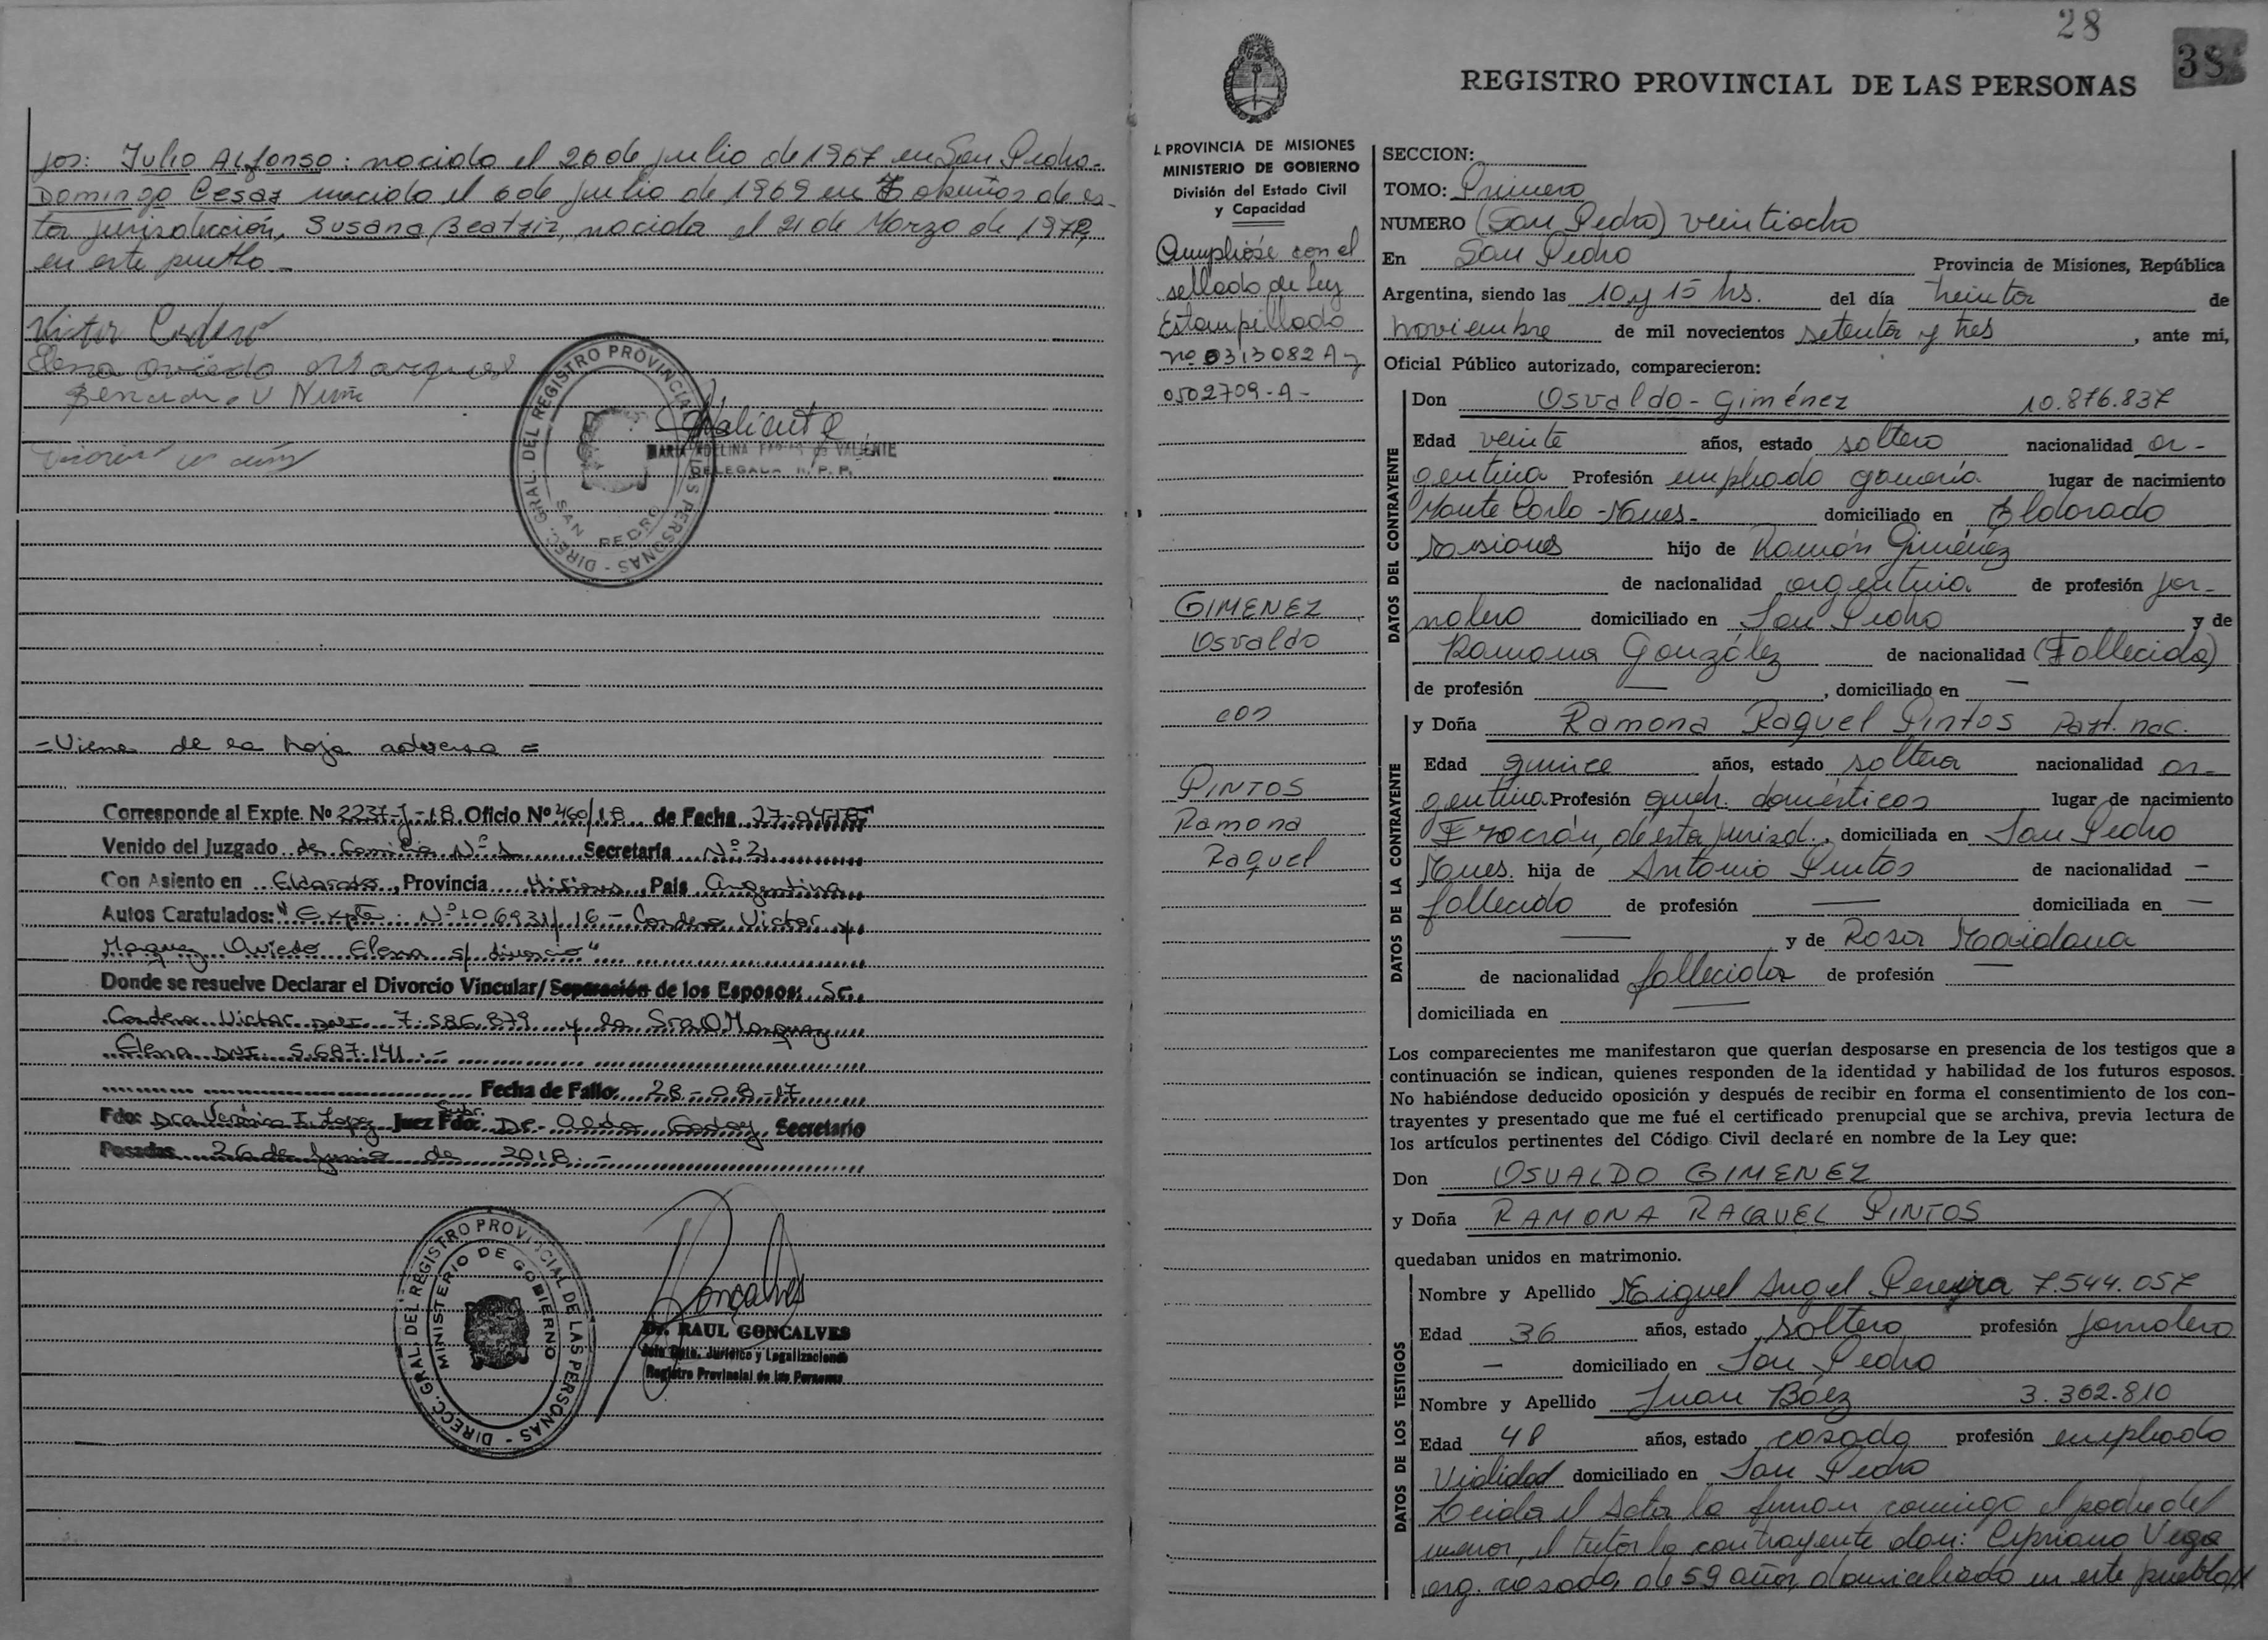 jos: Julio Alfonso: nacido el 20 de julio de 1967 en San Pedro-
Domingo Cesar nacido el 6 de julio de 1969 en Tobuños de es-
ta jurisdicción, Susana Beatriz, nacida el 21 de Marzo de 1972,
en este pueblo-
Victor Cordero
Elena Oviedo Marquez
DIREC. GRAL. DEL REGISTRO PROVINCIAL DE LAS PERSONAS
SAN PEDRO
Valiente
MARIA ADELINA DE VALIENTE
DELEGADA R. P. P.
=Viene de la hoja adversa=
Corresponde al Expte. Nº 2237-J-18 Oficio Nº 460/18 de Fecha
Venido del Juzgado de Familia Nº 1 Secretaría Nº 2
Con Asiento en Eldorado, Provincia Misiones, País Argentina
Autos Caratulados: "Expte. Nº 106931/16 - Cordero Victor y
Marquez Oviedo Elena s/ divorcio"
Donde se resuelve Declarar el Divorcio Vincular/Separación de los Esposos: Sr.
Cordero Victor DNI 7.586.879 y la Sra O Marquez
Elena DNI. 5.687.141.-
Fecha de Fallo: 28-08-17
Fdo: Dra Verónica I. Lopez Juez Subr. Fdo: Dr. Aldo Godoy Secretario
Posadas 26 de Junio de 2018.-
DIRECC. GRAL. DEL REGISTRO PROVINCIAL DE LAS PERSONAS
MINISTERIO DE GOBIERNO
Goncalves
Dr. RAUL GONCALVES
Jefe Dpto. Jurídico y Legalizaciones
Registro Provincial de las Personas
28
38
REGISTRO PROVINCIAL DE LAS PERSONAS
PROVINCIA DE MISIONES
MINISTERIO DE GOBIERNO
División del Estado Civil
y Capacidad
Cumplióse con el
sellado de Ley
Estampillado
nº 0313082 A y
0502709-A-
GIMENEZ
Osvaldo
con
PINTOS
Ramona
Raquel
SECCION:
TOMO: Primero
NUMERO (San Pedro) veintiocho
En San Pedro Provincia de Misiones, República
Argentina, siendo las 10 y 15 hs. del día treinta de
noviembre de mil novecientos setenta y tres, ante mi,
Oficial Público autorizado, comparecieron:
DATOS DEL CONTRAYENTE
Don Osvaldo-Giménez 10.876.837
Edad veinte años, estado soltero nacionalidad ar-
gentina Profesión empleado gomería lugar de nacimiento
Monte Carlo-Mnes- domiciliado en Eldorado
Misiones hijo de Ramón Giménez
de nacionalidad argentina de profesión jor-
nalero domiciliado en San Pedro y de
Ramona González de nacionalidad (Fallecida)
de profesión — , domiciliado en —
DATOS DE LA CONTRAYENTE
y Doña Ramona Raquel Pintos Part. nac.
Edad quince años, estado soltera nacionalidad ar-
gentina Profesión queh. domésticos lugar de nacimiento
Fracrán, de esta jurisd., domiciliada en San Pedro
Mnes. hija de Antonio Pintos de nacionalidad —
fallecido de profesión — domiciliada en —
— y de Rosa Maidana
de nacionalidad fallecida de profesión —
domiciliada en —
Los comparecientes me manifestaron que querían desposarse en presencia de los testigos que a
continuación se indican, quienes responden de la identidad y habilidad de los futuros esposos.
No habiéndose deducido oposición y después de recibir en forma el consentimiento de los con-
trayentes y presentado que me fué el certificado prenupcial que se archiva, previa lectura de
los artículos pertinentes del Código Civil declaré en nombre de la Ley que:
Don OSVALDO GIMENEZ
y Doña RAMONA RAQUEL PINTOS
quedaban unidos en matrimonio.
DATOS DE LOS TESTIGOS
Nombre y Apellido Miguel Angel Pereyra 7.544.057
Edad 36 años, estado soltero profesión jornalero
— domiciliado en San Pedro
Nombre y Apellido Juan Báez 3.362.810
Edad 48 años, estado casado profesión empleado
Vialidad domiciliado en San Pedro
Leída el Acta la firman conmigo el padre del
menor, el tutor la contrayente don: Cipriano Vega
arg. casado, de 59 años, domiciliado en este pueblo